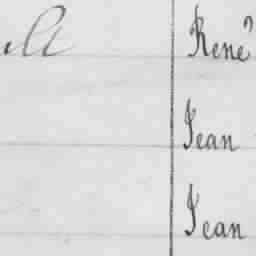 René
Jean
Jean